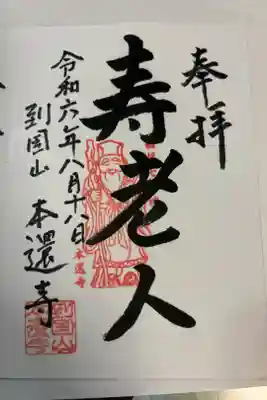 奉拝
寿老人
令和六年八月十八日
到岸山 本還寺
本還寺